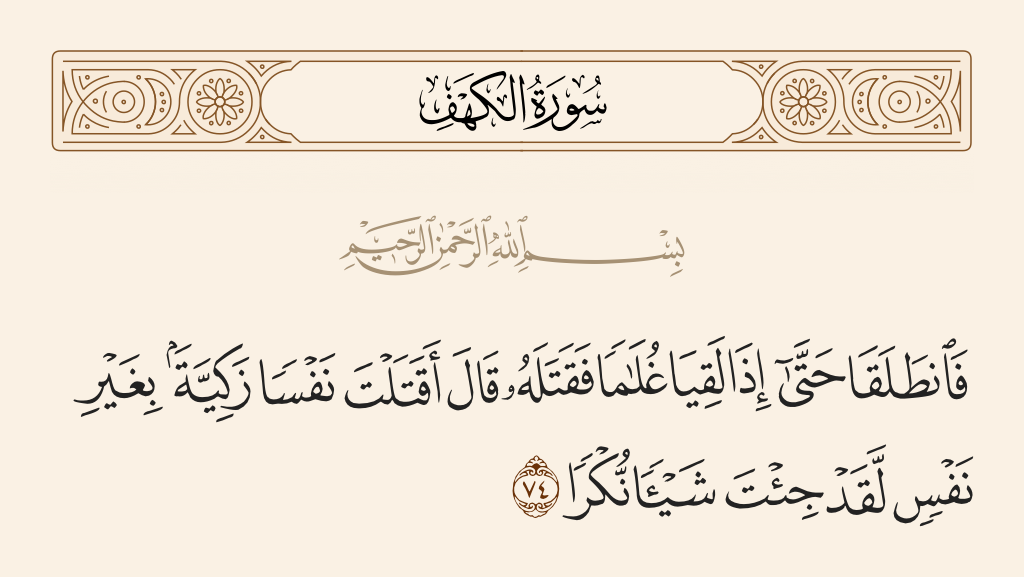 سُورَةُ الكَهْفِ
بِسْمِ ٱللَّهِ ٱلرَّحْمَٰنِ ٱلرَّحِيمِ
فَٱنطَلَقَا حَتَّىٰٓ إِذَا لَقِيَا غُلَٰمًا فَقَتَلَهُۥ قَالَ أَقَتَلْتَ نَفْسًا زَكِيَّةًۢ بِغَيْرِ
نَفْسٍ لَّقَدْ جِئْتَ شَيْـًٔا نُّكْرًا ٧٤